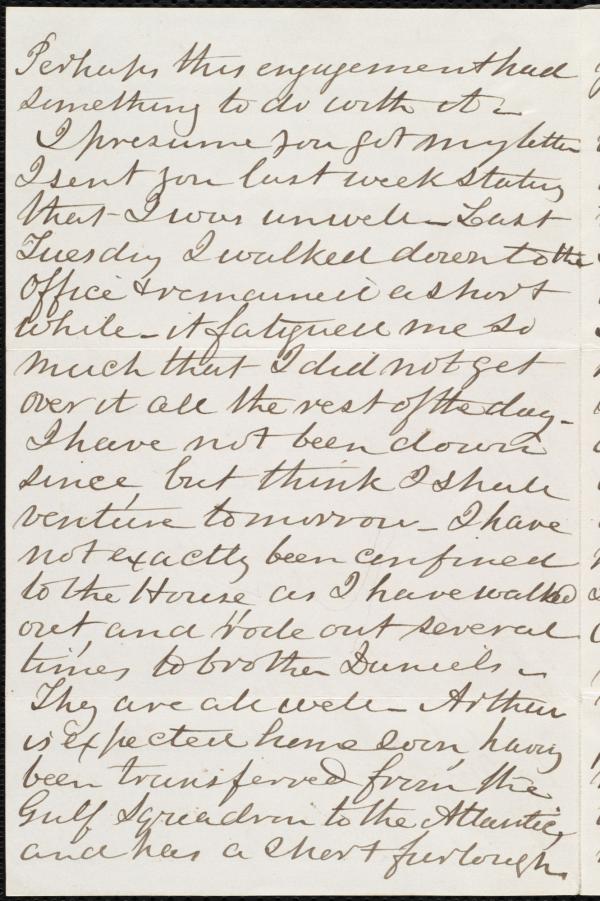 Perhaps this engagement had
something to do with it –
I presume you got my letter
I sent you last week stating
that I was unwell – Last
Tuesday I walked down to the
office & remained a short
while – it fatigued me so
much that I did not get
over it all the rest of the day –
I have not been down
since, but think I shall
venture tomorrow – I have
not exactly been confined
to the House as I have walked
out, and rode out several
times to brother Daniels –
They are all well – Arthur
is expected home soon, having
been transferred from the
Gulf Squadron to the Atlantic,
and has a short furlough.